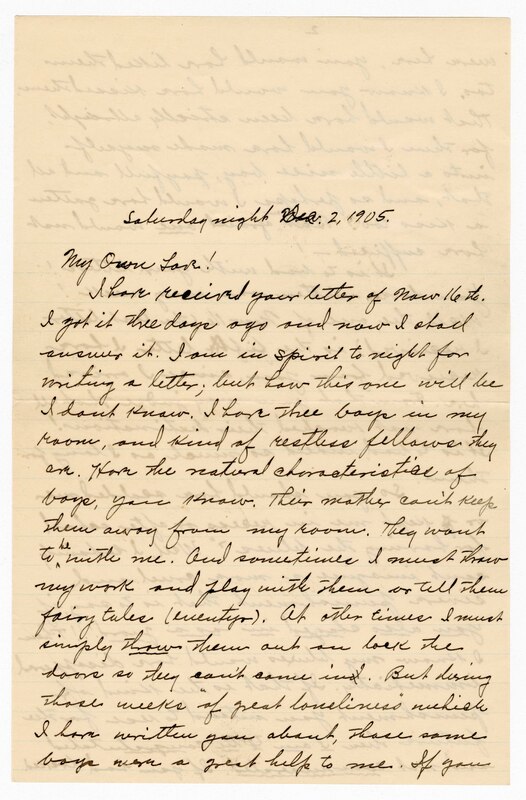 Saturday night Dec. 2, 1905.
My Own Love!
I have received your letter of Nov 16th.
I got it three days ago and now I shall
answer it. I am in spirit to night for
writing a letter; but how this one will be
I don't know. I have three boys in my
room, and kind of restless fellows they
are. Have the natural characteristics of
boys, you know. Their mother can't keep
them away from my room. They want
to be with me. And sometimes I must throw
my work and play with them or tell them
fairy tales (eventyr). At other times I must
simply throw them out an lock the
doors so they can't come in. But during
those weeks "of great loneliness" which
I have written you about, those same
boys were a great help to me. If you